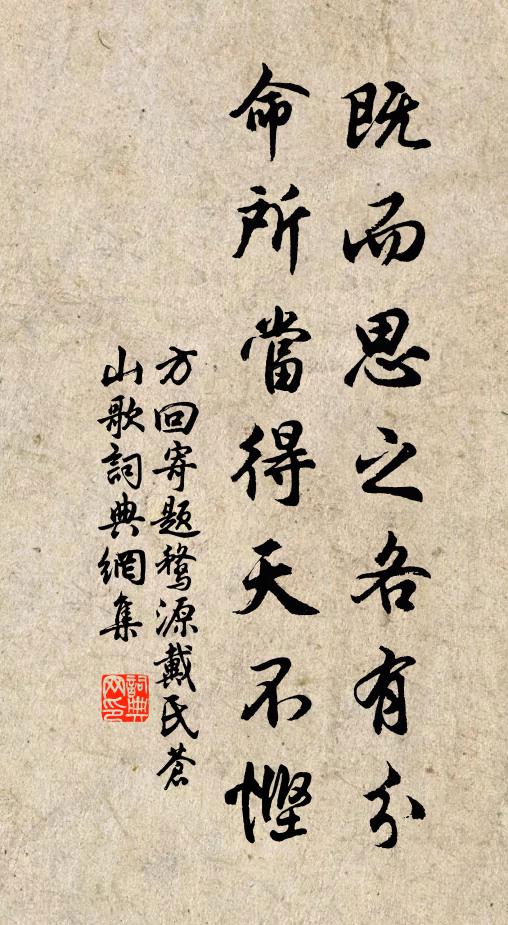 既而思之各有分
命所當得天不慳
方回寄题鹜源戴氏蒼
山歌詞典網集
詞典网印